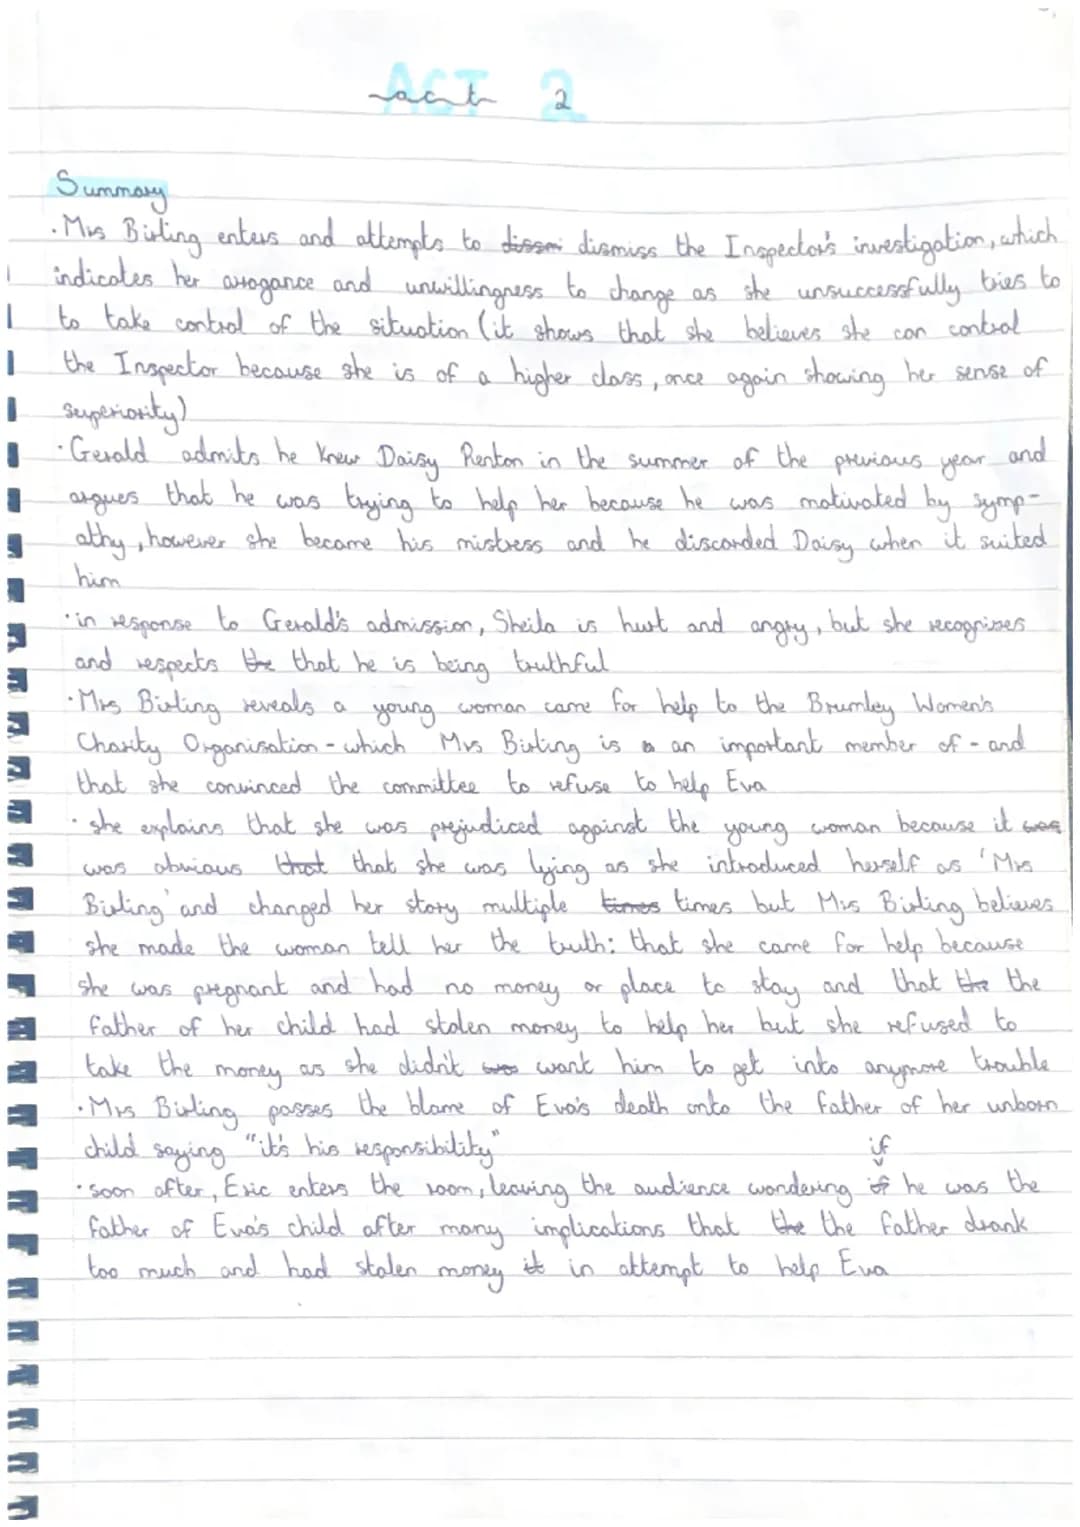 ACT 2
act 2
Summary
· Mrs Birling enters and attempts to dissmi dismiss the Inspector's investigation, which
indicates her arrogance and unwillingness to change as she unsuccessfully tries to
to take control of the situation (it shows that she believes she can control
the Inspector because she is of a higher class, once again showing her sense of
superiority)
· Gerald admits he knew Daisy Renton in the summer of the previous year and
argues that he was trying to help her because he was motivated by symp-
athy, however she became his mistress and he discarded Daisy when it suited
him
· in response to Gerald's admission, Sheila is hurt and angry, but she recognises
and respects the that he is being truthful
· Mrs Birling reveals a young woman came for help to the Brumley Women's
Charity Organisation - which Mrs Birling is a an important member of - and
that she convinced the committee to refuse to help Eva
· she explains that she was prejudiced against the young woman because it was
was obvious that that she was lying as she introduced herself as 'Mrs
Birling' and changed her story multiple times times but Mrs Birling believes
she made the woman tell her the truth: that she came for help because
she was pregnant and had no money or place to stay and that the the
father of her child had stolen money to help her but she refused to
take the money as she didn't was want him to get into anymore trouble
· Mrs Birling passes the blame of Eva's death onto the father of her unborn
child saying "it's his responsibility"
if
· soon after, Eric enters the room, leaving the audience wondering if he was the
father of Eva's child after many implications that the the father drank
too much and had stolen money it in attempt to help Eva